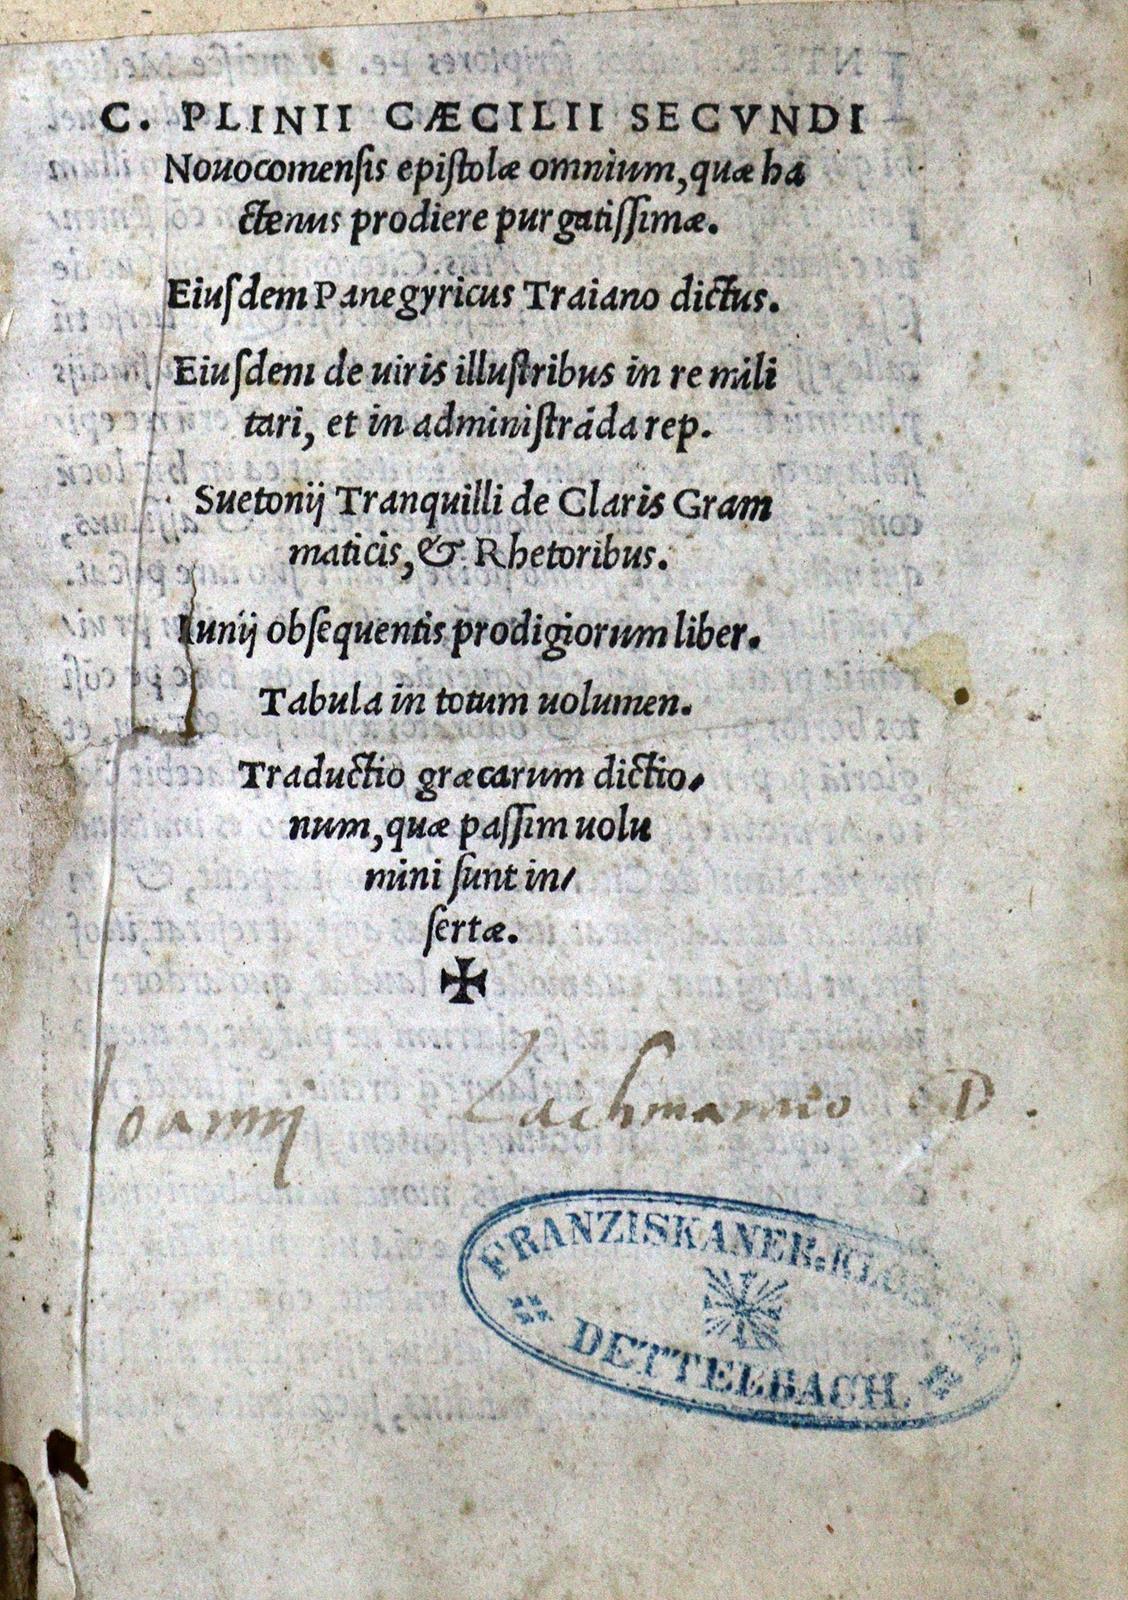 C. PLINII CÆCILII SECVNDI
Nouocomensis epistolæ omnium, quæ ha
ctenus prodiere purgatissimæ.
Eiusdem Panegyricus Traiano dictus.
Eiusdem de uiris illustribus in re mili
tari, et in administrāda rep.
Suetonij Tranquilli de Claris Gram
maticis, & Rhetoribus.
Iunij obsequentis prodigiorum liber.
Tabula in totum uolumen.
Traductio græcarum dictio,
num, quæ passim uolu
mini sunt in/
sertæ.
✠
Joannij Lachmannio D.
FRANZISKANER-KLOSTER
DETTELBACH.